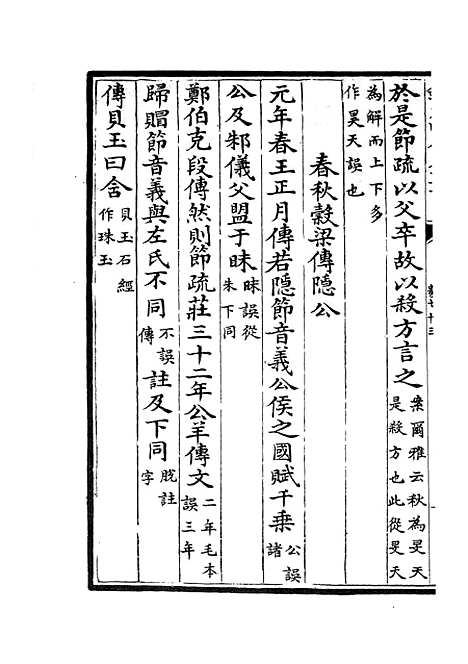 於是節疏以父卒故以殺方言之案爾雅云秋為旻天是殺方也此從旻天
為解而上下多作昊天誤也
春秋穀梁傳隱公
元年春王正月傳若隱節音義公侯之國賦千乗公誤諸
公及邾儀父盟于昧昧誤從朱下同
鄭伯克段傳然則節疏莊三十二年公羊傳文二年毛本誤三年
歸賵節音義與左氏不同不誤傳註及下同脱註字
傳貝玉曰含貝玉石經作珠玉
卷七十三